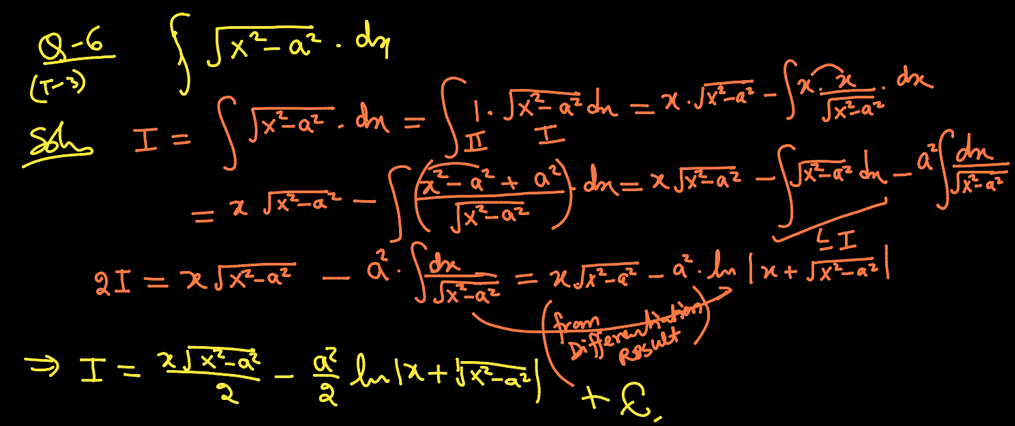 Q-6 ∫ √(x²-a²) · dx
(T-3)
Soln I = ∫ √(x²-a²) · dx = ∫ 1 · √(x²-a²) dx = x · √(x²-a²) - ∫ x · x/√(x²-a²) · dx
II I
= x √(x²-a²) - ∫ ((x²-a²+a²)/√(x²-a²)) · dx = x √(x²-a²) - ∫ √(x²-a²) dx - a² ∫ dx/√(x²-a²)
I
2I = x √(x²-a²) - a² · ∫ dx/√(x²-a²) = x √(x²-a²) - a² · ln |x + √(x²-a²)|
(from
Differentiation
Result)
⇒ I = x√(x²-a²)/2 - a²/2 ln |x + √(x²-a²)| + C.